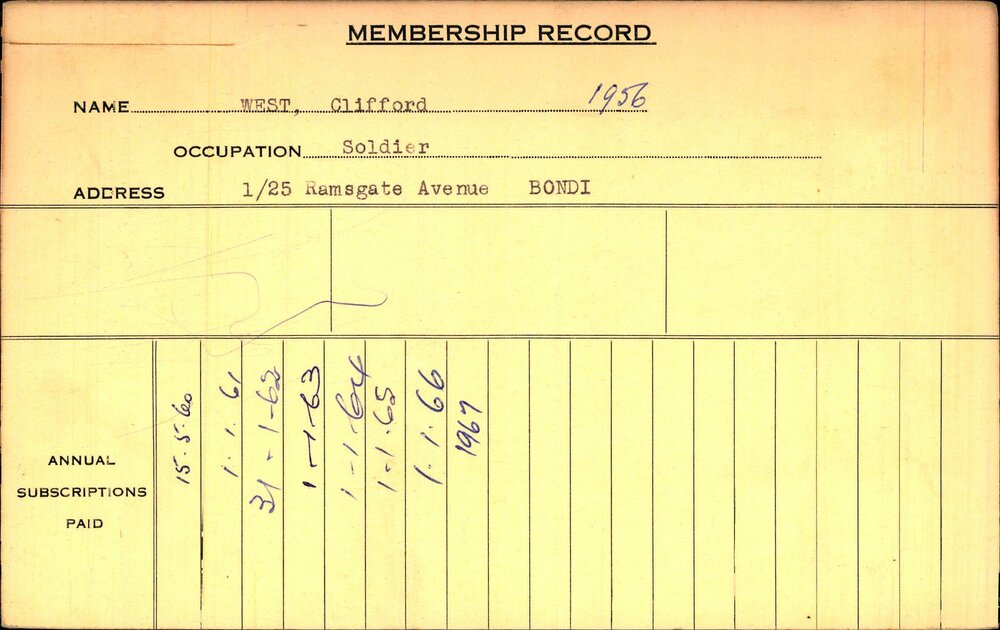 MEMBERSHIP RECORD
NAME WEST, Clifford 1956
OCCUPATION Soldier
ADDRESS 1/25 Ramsgate Avenue BONDI
ANNUAL
SUBSCRIPTIONS
PAID
15.5.60
1.1.61
31-1-62
1-1-63
1-1-64
1-1-65
1.1.66
1967